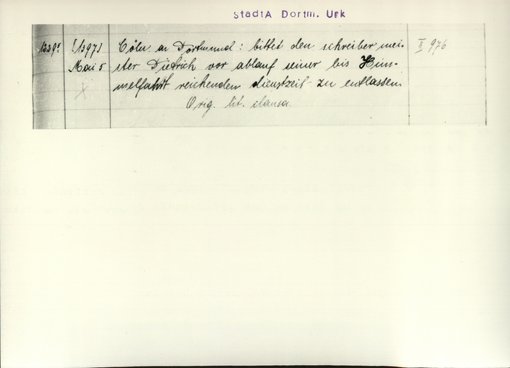 StadtA Dortm. Urk
1397? [1397] Cöln an Dortmund: bittet den schreiber mei- II 976
Mai 5 ster Dietrich vor ablauf seiner bis Him-
x melfahrt reichenden dienstzeit zu entlassen.
Orig. lit. clausa